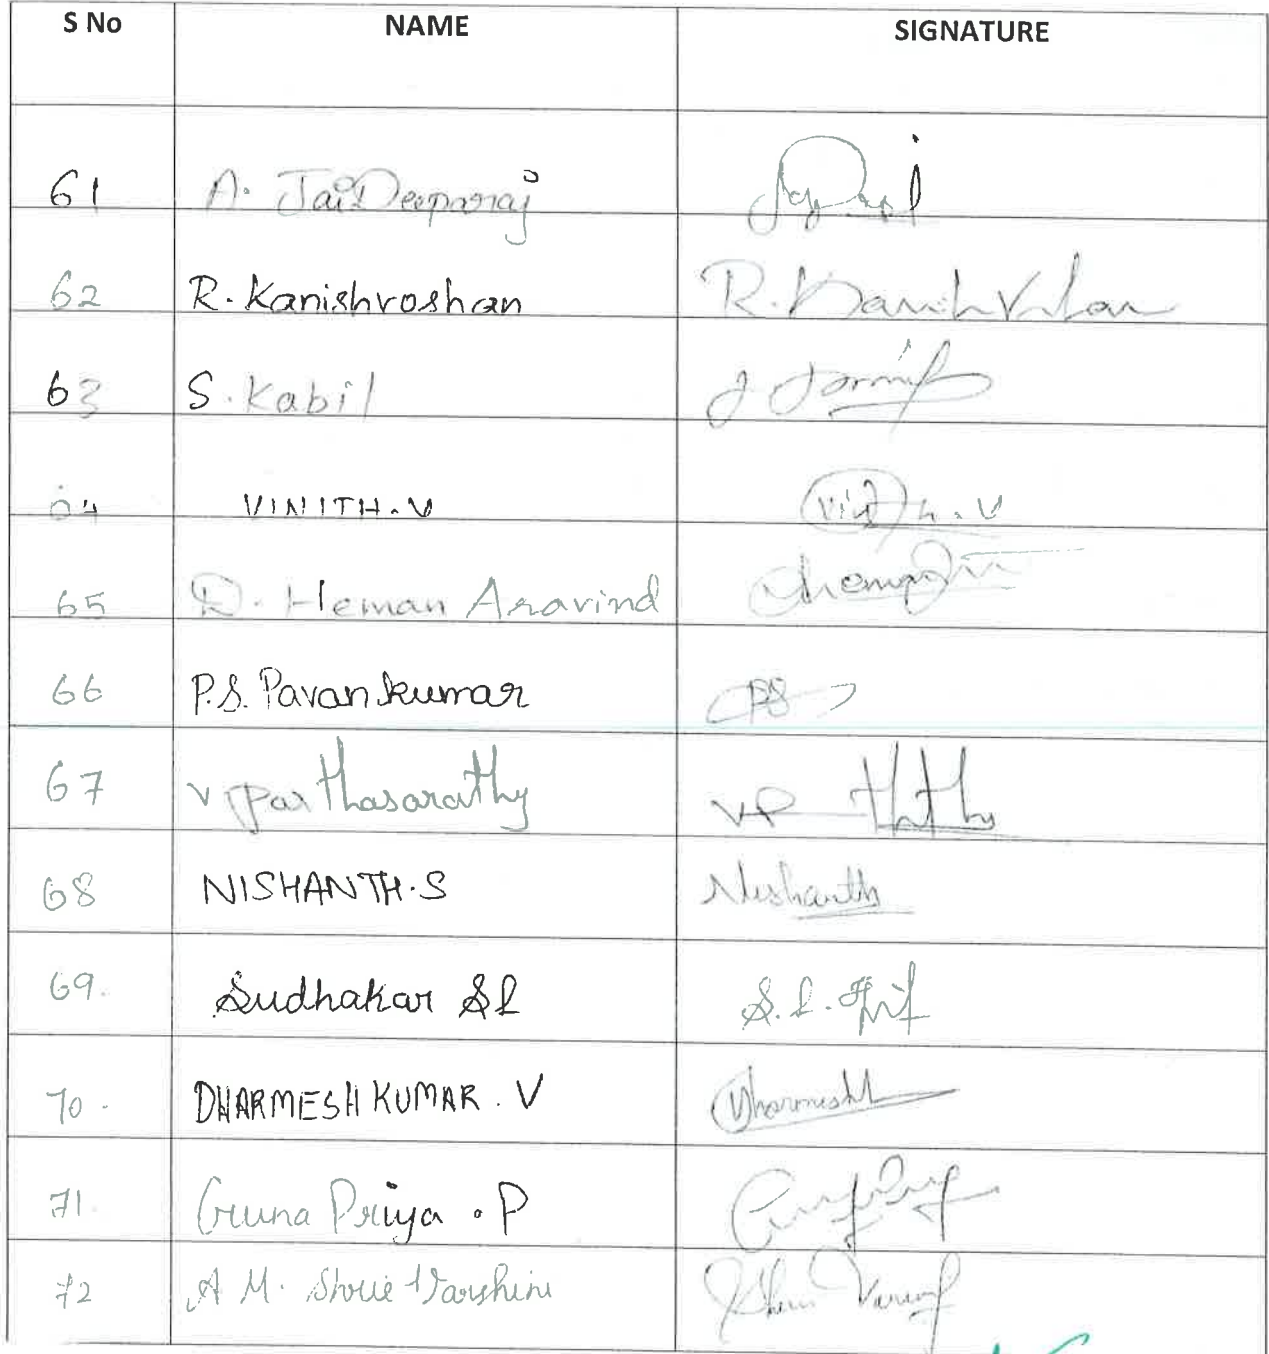 S No NAME SIGNATURE
61 A. JaiDeeparaj
62 R. Kanishroshan R.
63 S. Kabil
64 VINITH.V Vinith.V
65 D. Heman Aravind
66 P.S. Pavankumar PS
67 V Parthasarathy VP
68 NISHANTH.S Nishanth
69. Sudhakar SL S.L.
70. DHARMESH KUMAR. V Dharmesh
71. Guna Priya . P
72 A M. Shree Varshini